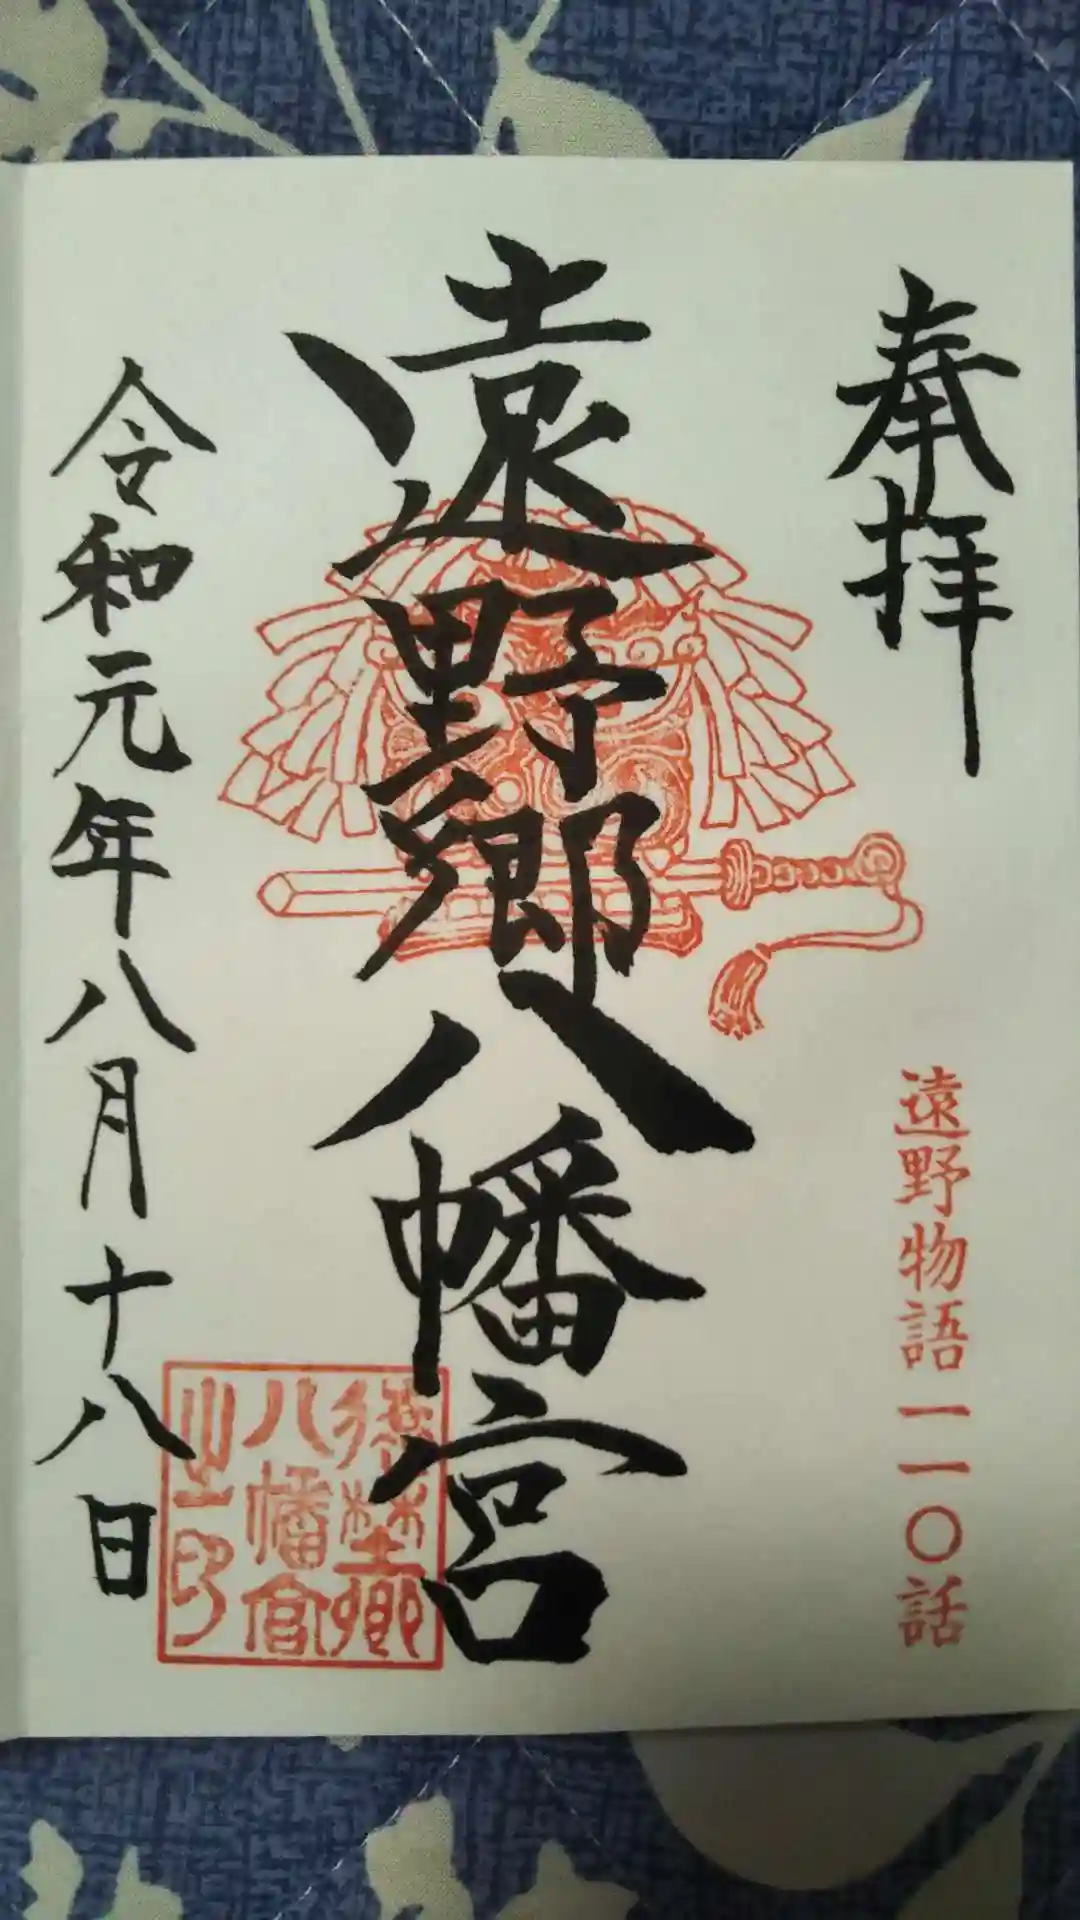 奉拝
遠野物語一一〇話
遠野郷八幡宮
遠野郷
八幡宮
之印
令和元年八月十八日